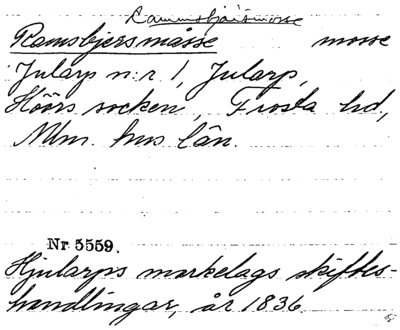 Rammsbjärsmosse
Ramsbjersmåsse mosse
Jularp n:r 1, Jularp,
Höörs socken, Frosta hd,
Mlm. hus län.
Nr 5559.
Hjularps markelags skiftes-
handlingar, år 1836.